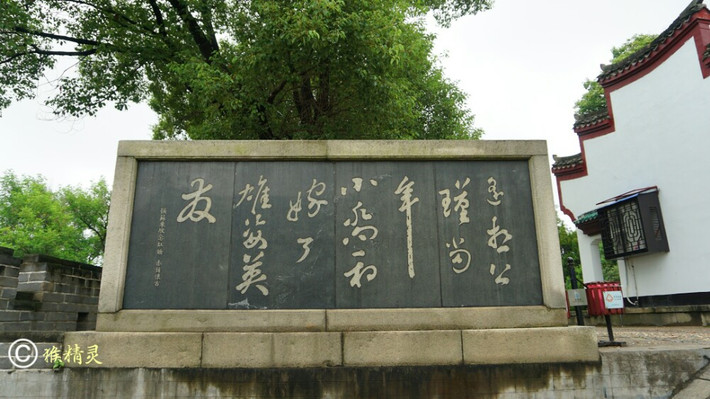 遥想公
瑾当
年
小乔初
嫁了
雄姿英
发
©猴精灵